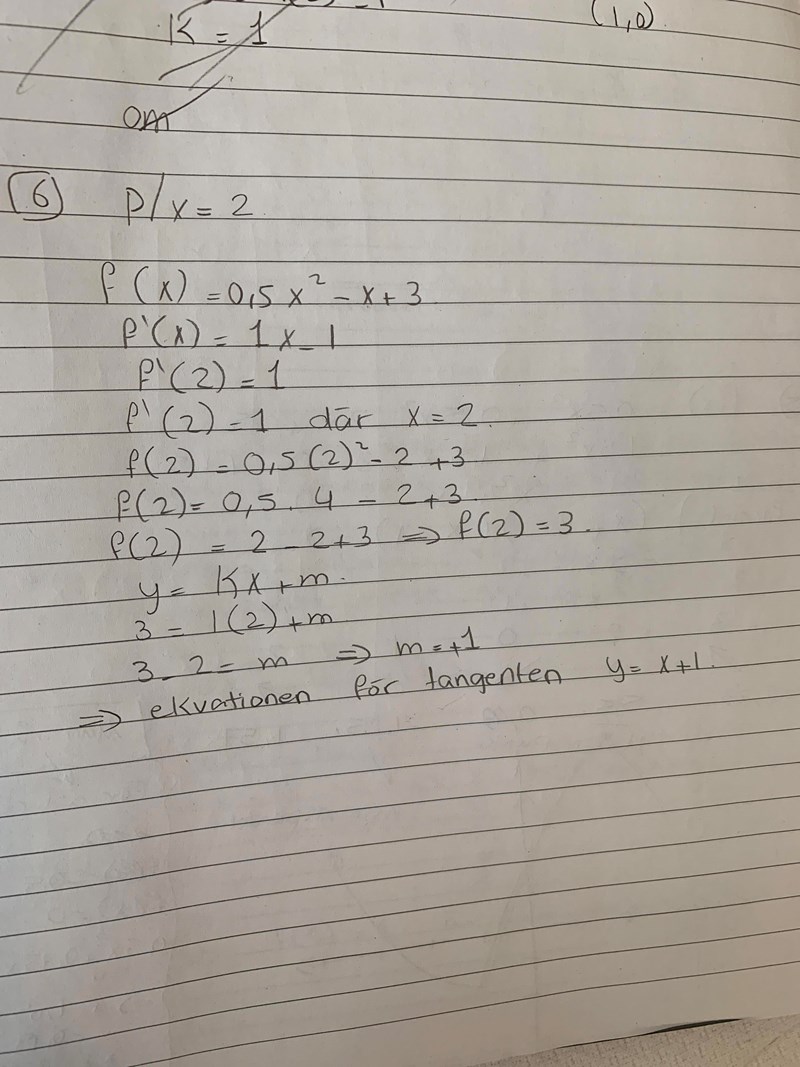 K = 1
(1,0)
om
6 P/x = 2
f(x) = 0,5x² - x + 3
f'(x) = 1x - 1
f'(2) = 1
f'(2) = 1 där x = 2.
f(2) = 0,5(2)² - 2 + 3
f(2) = 0,5 . 4 - 2 + 3.
f(2) = 2 - 2 + 3 => f(2) = 3.
y = Kx + m.
3 = 1(2) + m
3 - 2 = m => m = +1
=> ekvationen för tangenten y = x + 1.